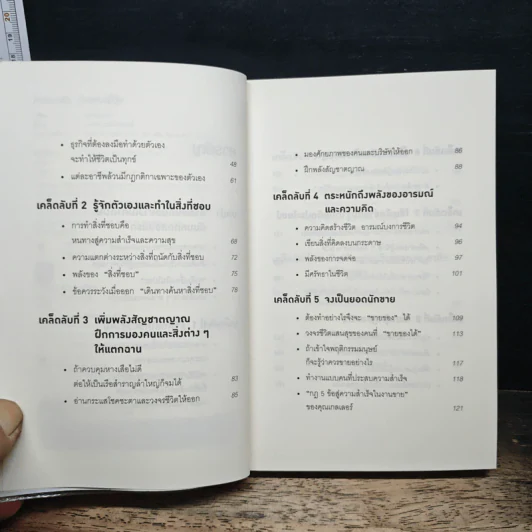 • ธุรกิจที่ต้องลงมือทำด้วยตัวเอง
จะทำให้ชีวิตเป็นทุกข์ 48
• แต่ละอาชีพล้วนมีกฎกติกาเฉพาะของตัวเอง 61
เคล็ดลับที่ 2 รู้จักตัวเองและทำในสิ่งที่ชอบ
• การทำสิ่งที่ชอบคือ
หนทางสู่ความสำเร็จและความสุข 68
• ความแตกต่างระหว่างสิ่งที่ถนัดกับสิ่งที่ชอบ 72
• พลังของ "สิ่งที่ชอบ" 75
• ข้อควรระวังเมื่อออก "เดินทางค้นหาสิ่งที่ชอบ" 78
เคล็ดลับที่ 3 เพิ่มพลังสัญชาตญาณ
ฝึกการมองคนและสิ่งต่าง ๆ
ให้แตกฉาน
• ถ้าควบคุมหางเสือไม่ดี
ต่อให้เป็นเรือสำราญลำใหญ่ก็จมได้ 83
• อ่านกระแสโชคชะตาและวงจรชีวิตให้ออก 85
• มองศักยภาพของคนและบริษัทให้ออก 86
• ฝึกพลังสัญชาตญาณ 89
เคล็ดลับที่ 4 ตระหนักถึงพลังของอารมณ์
และความคิด
• ความคิดสร้างชีวิต อารมณ์บงการชีวิต 94
• เขียนสิ่งที่คิดลงบนกระดาษ 96
• พลังของการจดจ่อ 97
• มีศรัทธาในชีวิต 101
เคล็ดลับที่ 5 จงเป็นยอดนักขาย
• ต้องทำอย่างไรจึงจะ "ขายของ" ได้ 109
• วงจรชีวิตแสนสุขของคนที่ "ขายของได้" 113
• ถ้าเข้าใจพฤติกรรมมนุษย์
ก็จะรู้ว่าควรขายอย่างไร 117
• ทำงานแบบคนที่ประสบความสำเร็จ 118
• "กฎ 5 ข้อสู่ความสำเร็จในงานขาย"
ของคุณเกลเลอร์ 121